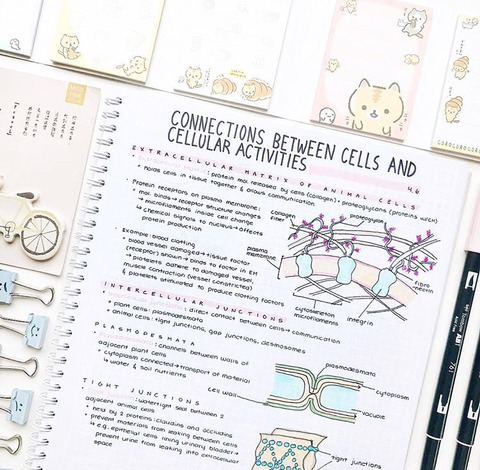 CONNECTIONS BETWEEN CELLS AND
CELLULAR ACTIVITIES
4.6
EXTRACELLULAR MATRIX OF ANIMAL CELLS
: protein mol. released by cells (collagen) + proteoglycans (proteins w/CH)
• holds cells in tissue together & allows communication
• Protein receptors on plasma membrane:
• mol. binds → receptor structure changes
→ microfilaments inside cell change
→ chemical signals to nucleus → affects
protein production
collagen
fiber
proteoglycan
• Example: blood clotting
• blood vessel damaged → tissue factor
(receptor) shown → binds to factor in
→ platelets adhere to damaged vessel,
muscle contraction (vessel constricted)
& platelets stimulated to produce clotting factors
plasma
membrane
fibronectin
cytoskeleton
microfilaments
integrin
INTERCELLULAR JUNCTIONS
: direct contact between cells → communication
• plant cells: plasmodesmata
• animal cells: tight junctions, gap junctions, desmosomes
PLASMODESMATA
: channels between walls of
adjacent plant cells
• cytoplasm connected → transport of material
↳ water & soil nutrients
plasmodesmata
cell wall
cytoplasm
vacuole
TIGHT JUNCTIONS
: watertight seal between 2
adjacent animal cells
• held by 2 proteins: claudins and occludins
• prevent materials from leaking between cells
↳ epithelial cells lining urinary bladder →
prevent urine from leaking into extracellular
space
tight junctions
COROCOROCORO